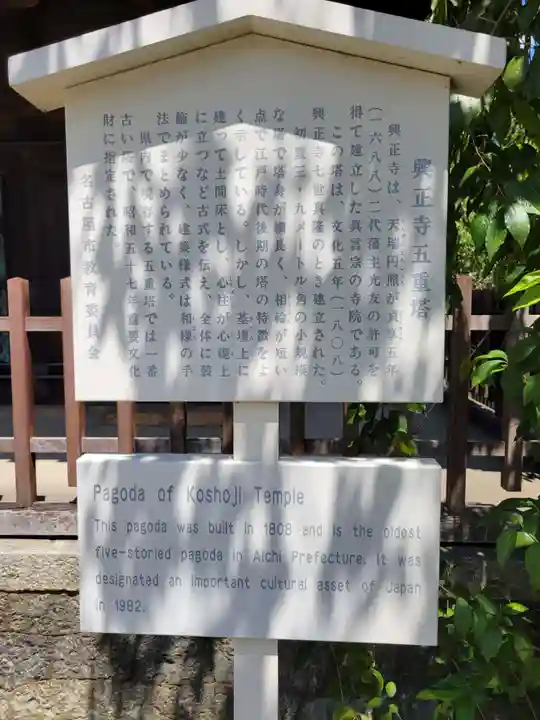 興正寺五重塔
興正寺は、天瑞円照が貞享五年
(一六八八)二代藩主光友の許可を
得て建立した真言宗の寺院である。
この塔は、文化五年(一八〇八)
興正寺七世真隆のとき建立された。
初重三・九メートル角の小規模
な塔で塔身が細長く、相輪が短い
点で江戸時代後期の塔の特徴をよ
く示している。しかし、基壇上に
建って土間床とし、心柱が心礎上
に立つなど古式を伝え、全体に装
飾が少なく、建築様式は和様の手
法でまとめられている。
県内で現存する五重塔では一番
古い塔で、昭和五十七年重要文化
財に指定された。
名古屋市教育委員会
Pagoda of Koshoji Temple
This pagoda was built in 1808 and is the oldest
five-storied pagoda in Aichi Prefecture. It was
designated an important cultural asset of Japan
in 1982.